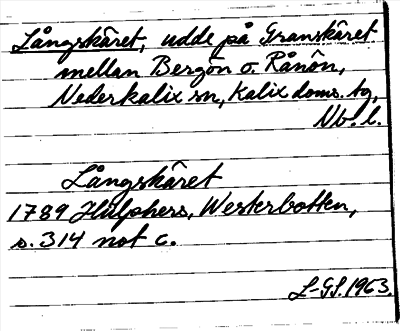 Långskäret, udde på Granskäret
mellan Bergön o. Rånön,
Nederkalix sn, Kalix doms. tg,
Nb. l.
Långskäret
1789 Hülphers, Westerbotten,
s. 314 not c.
L-GS. 1963.